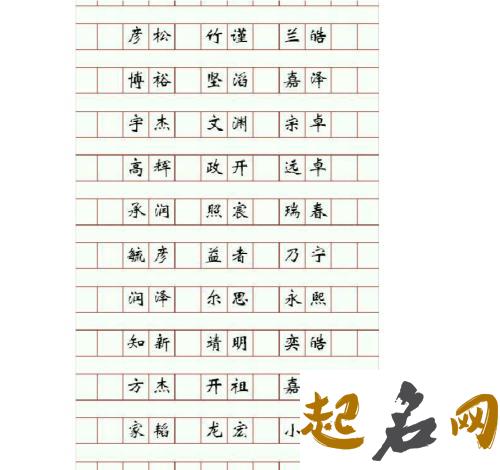 彦松 竹谨 兰皓
博裕 坚滔 嘉泽
宇杰 文渊 宗卓
高辉 政开 远卓
承润 照宸 瑞春
毓彦 益者 乃宁
润泽 尔思 永熙
知新 靖明 奕皓
方杰 开祖 嘉
家韬 龙宏 小
起名网